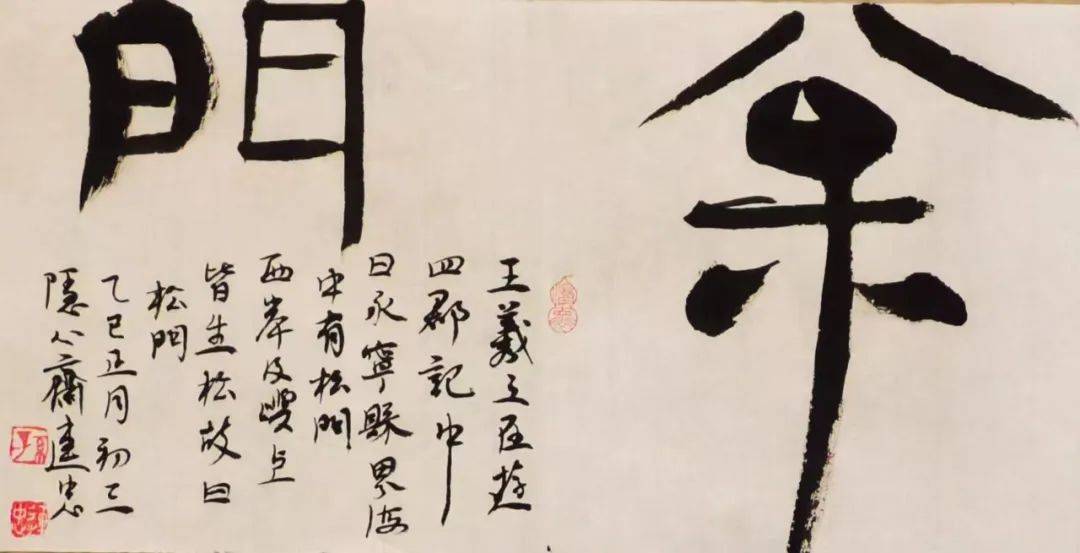 枀門
王羲之在遊
四郡記中
曰永寧縣界海
中有松門
西岸及嶼上
皆生松故曰
松門
乙巳正月初三
隱齋建忠